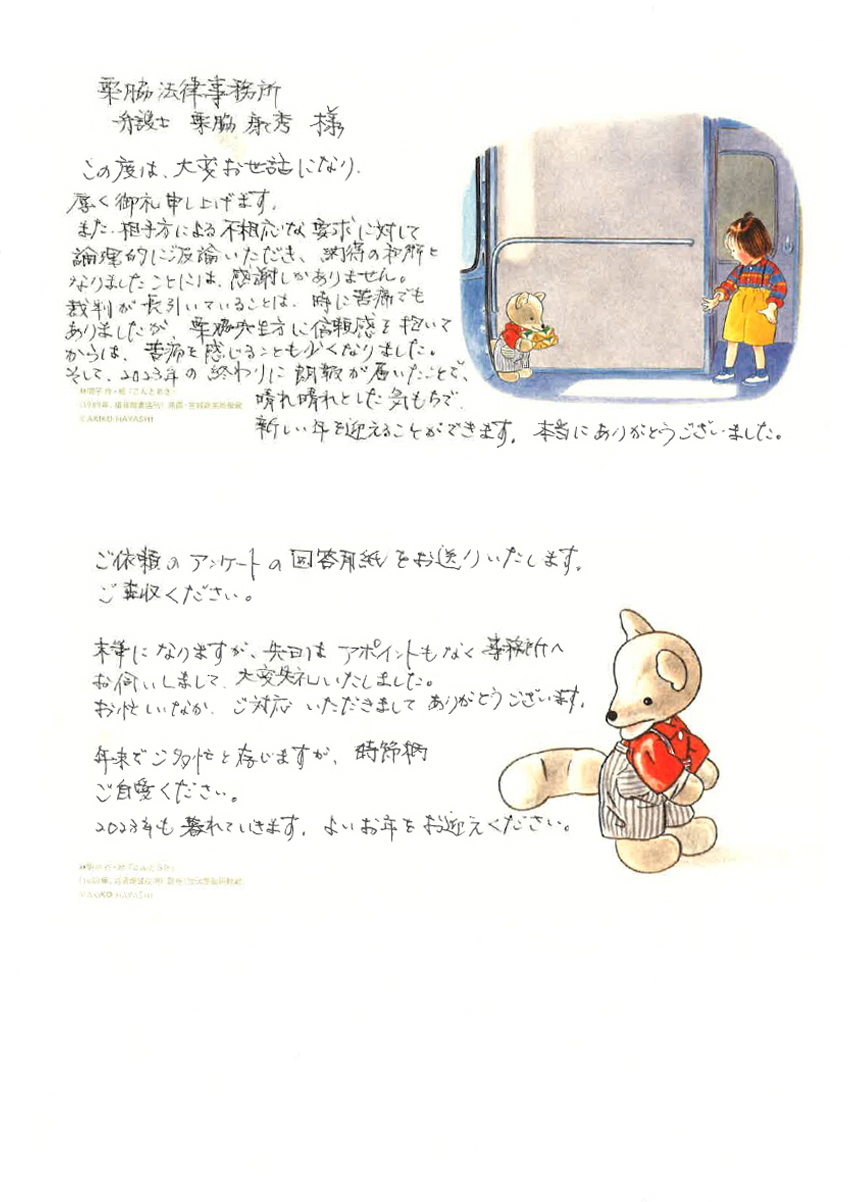 栗脇法律事務所
弁護士 栗脇 康秀 様
この度は、大変お世話になり、
厚く御礼申し上げます。
また、相手方による不相応な要求に対して
論理的にご反論いただき、納得の判断と
なりましたことには、感謝しかありません。
裁判が長引いていることは、時に苦痛でも
ありましたが、栗脇先生方に信頼感を抱いて
からは、苦痛を感じることも少くなりました。
そして、2023年の終わりに朗報が届いたことで、
晴れ晴れとした気もちで、
新しい年を迎えることができます。本当にありがとうございました。
林明子 作・絵『こんとあき』
(1989年、福音館書店刊) 原画・宮城県美術館蔵
©AKIKO HAYASHI
ご依頼のアンケートの回答用紙をお送りいたします。
ご査収ください。
末筆になりますが、先日はアポイントもなく事務所へ
お伺いしまして、大変失礼いたしました。
お忙しいなか、ご対応いただきましてありがとうございます。
年末でご多忙と存じますが、時節柄
ご自愛ください。
2023年も暮れていきます。よいお年をお迎えください。
©AKIKO HAYASHI